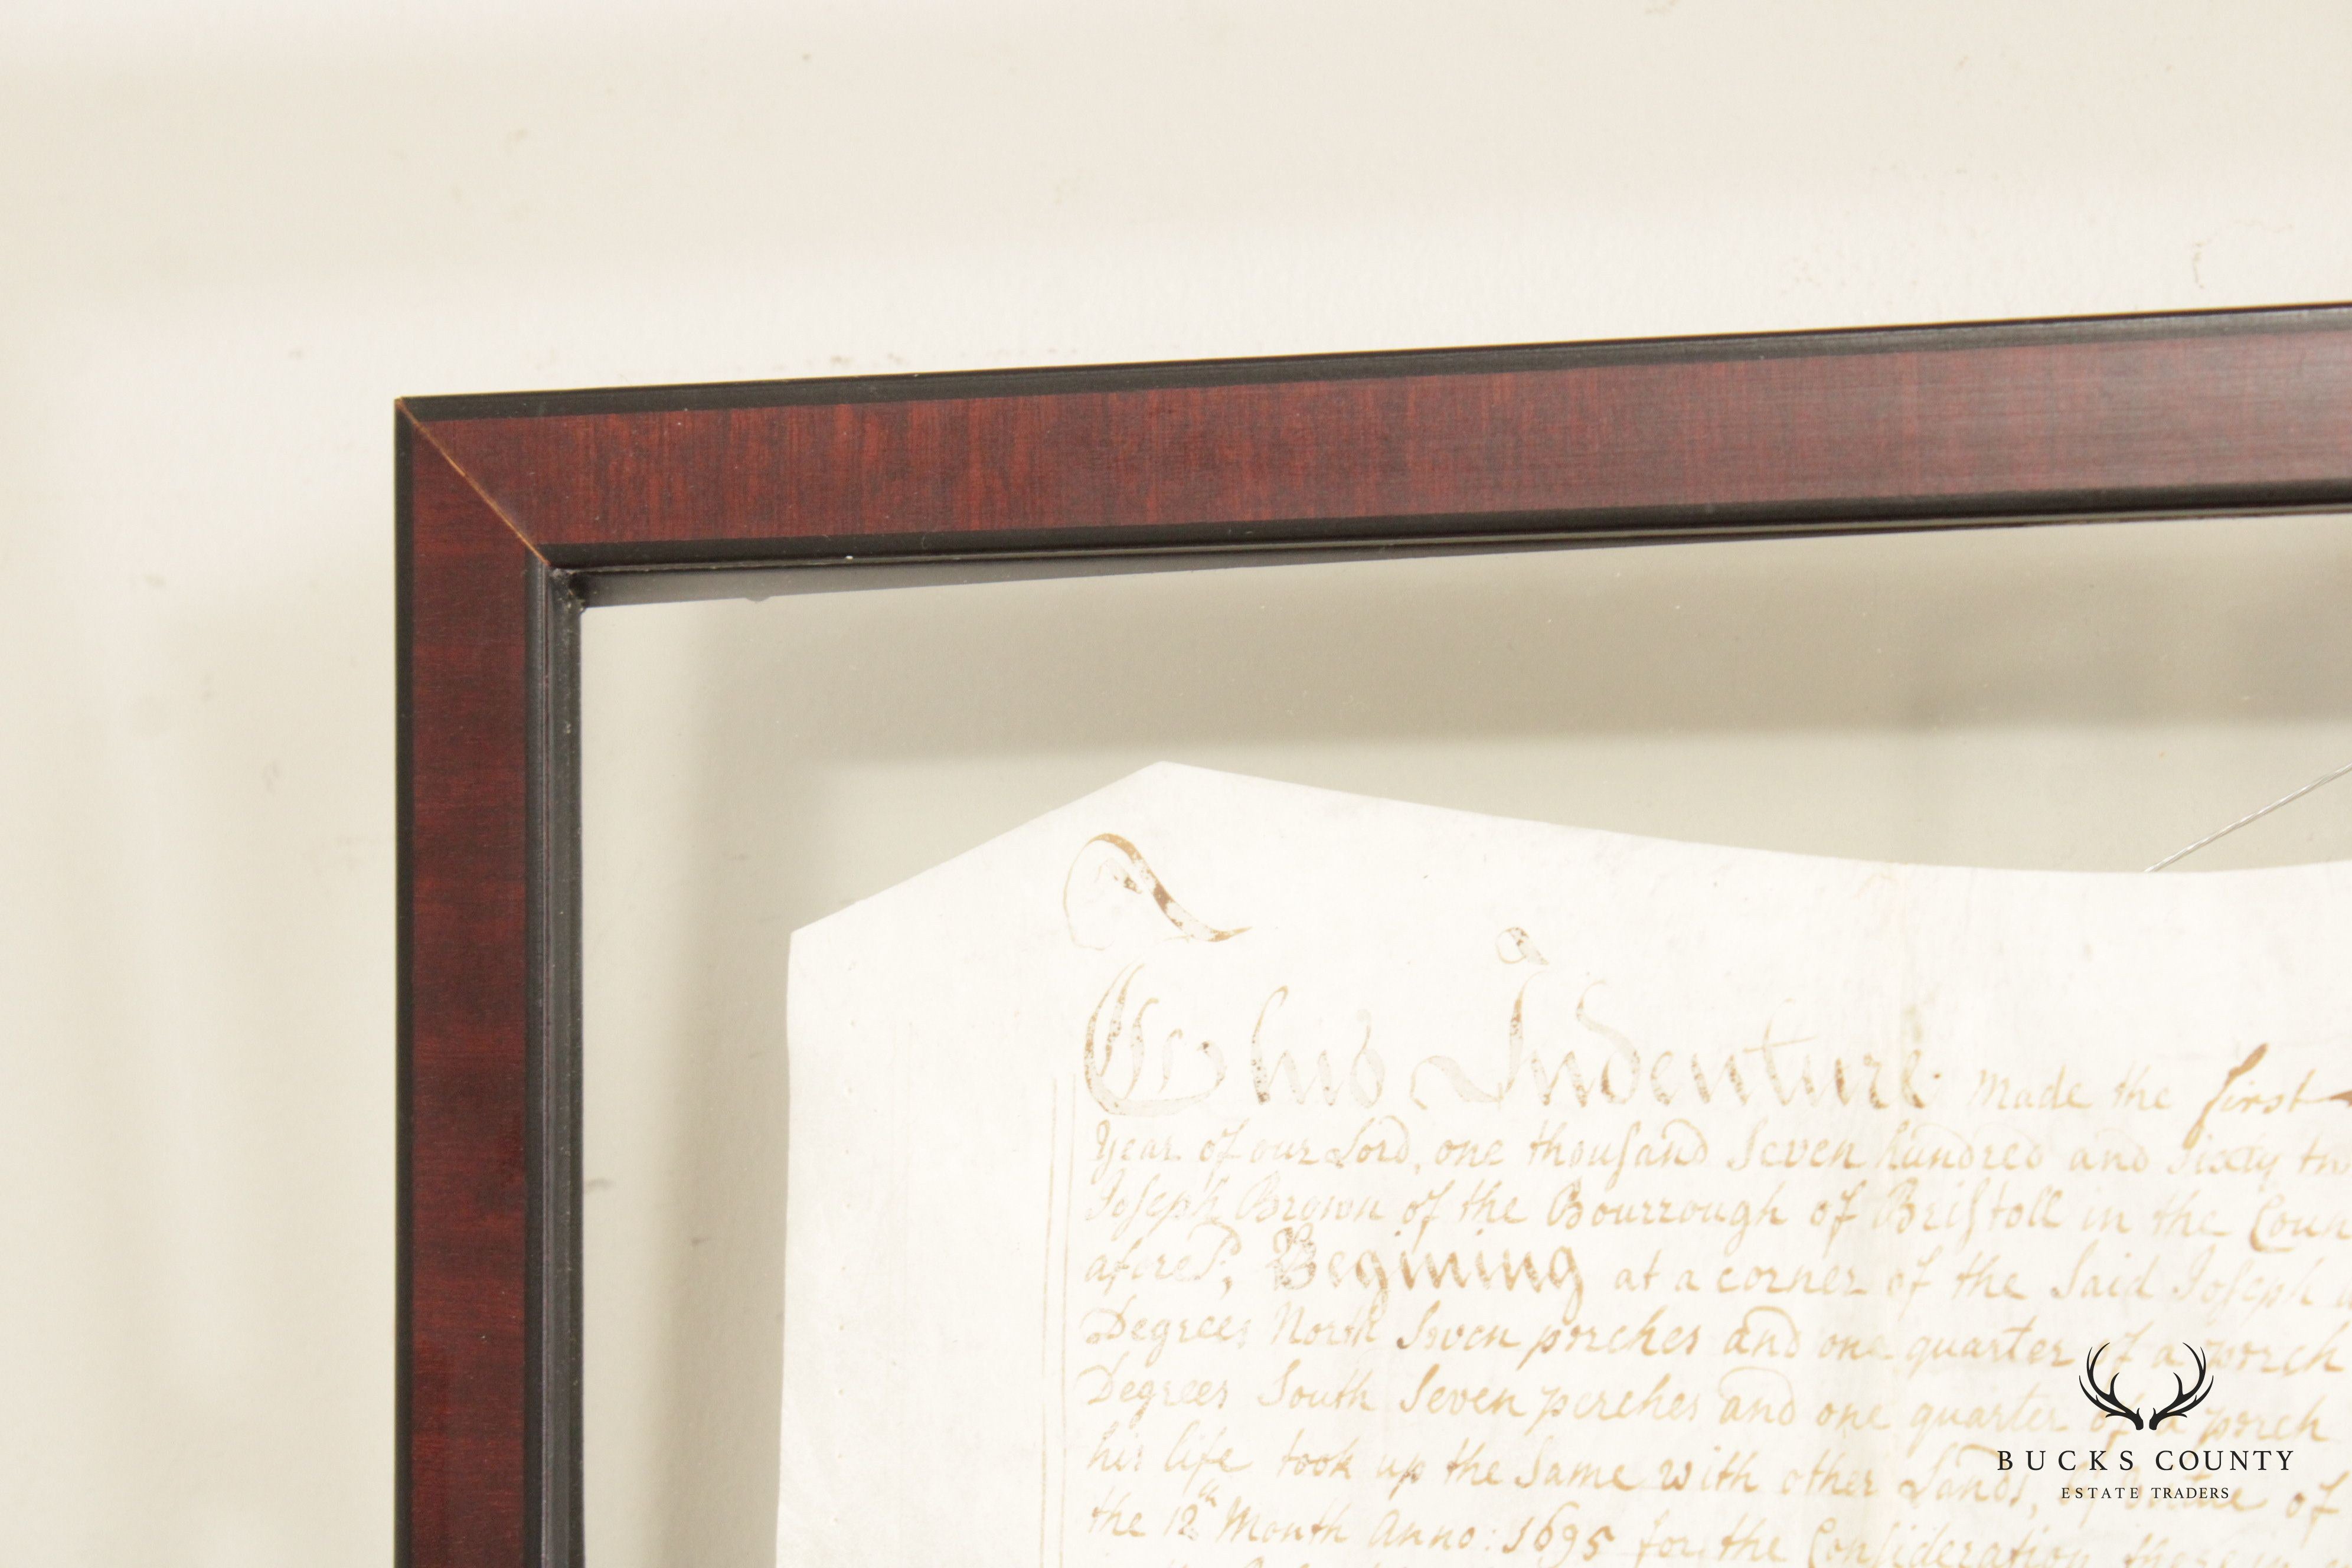 This Indenture Made the first
Year of our Lord, one thousand Seven hundred and Sixty
Joseph Brown of the Bourrough of Bristoll in the Coun
aforesd, Begining at a corner of the Said Joseph
Degrees North Seven porches and one quarter of a porch
Degrees South Seven perches and one quarter of a porch
his life took up the Same with other Lands, of
the 12th Month Anno: 1695 for the Consideration
BUCKS COUNTY
ESTATE TRADERS